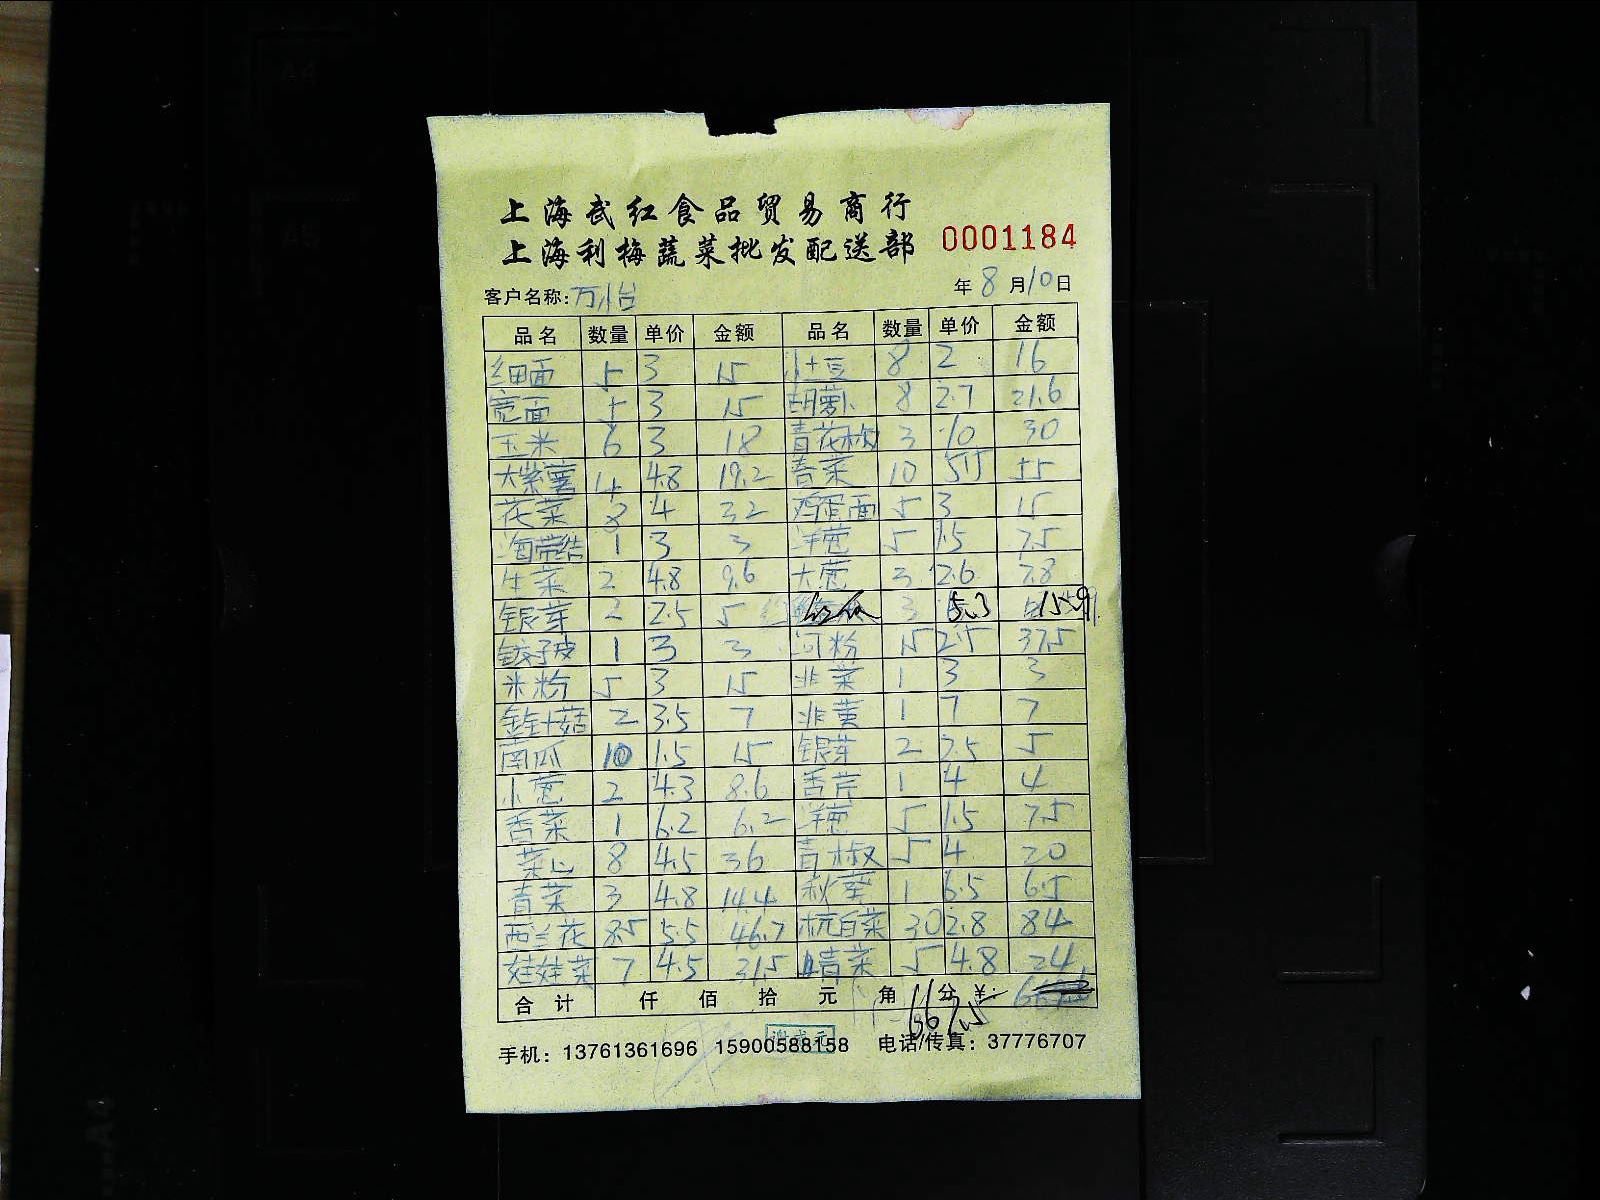 上海武红食品贸易商行
上海利梅蔬菜批发配送部 0001184
客户名称:万怡 年 8 月 10 日
品名 数量 单价 金额 品名 数量 单价 金额
细面 5 3 15 小土豆 8 2 16
宽面 5 3 15 胡萝卜 8 2.7 21.6
玉米 6 3 18 青花椒 3 10 30
大紫薯 4 4.8 19.2 春菜 10 5.5 55
花菜 8 4 32 鸡蛋面 5 3 15
海带结 1 3 3 洋葱 5 1.5 7.5
生菜 2 4.8 9.6 大葱 3 2.6 7.8
银芽 2 2.5 5 3 5.3 15.9
饺子皮 1 3 3 河粉 15 2.5 37.5
米粉 5 3 15 韭菜 1 3 3
金针菇 2 3.5 7 韭黄 1 7 7
南瓜 10 1.5 15 银芽 2 2.5 5
小葱 2 4.3 8.6 香芹 1 4 4
香菜 1 6.2 6.2 洋葱 5 1.5 7.5
菜心 8 4.5 36 青椒 5 4 20
青菜 3 4.8 14.4 秋葵 1 6.5 6.5
西兰花 8.5 5.5 46.7 杭白菜 30 2.8 84
娃娃菜 7 4.5 31.5 青菜 5 4.8 24
合计 仟 佰 拾 元 角 分 ¥:
手机: 13761361696 15900588158 电话/传真: 37776707